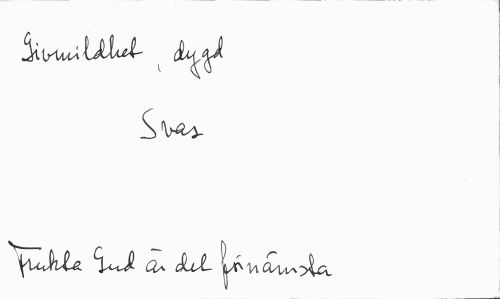 Givmildhet, dygd
Svas
Frukta Gud är det förnämsta